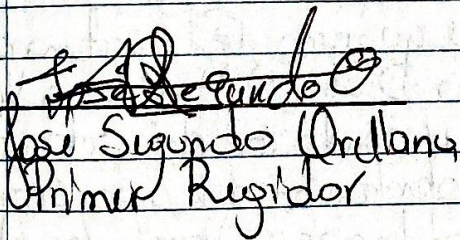 Jose Segundo O
Jose Segundo Orellana
Primer Regidor